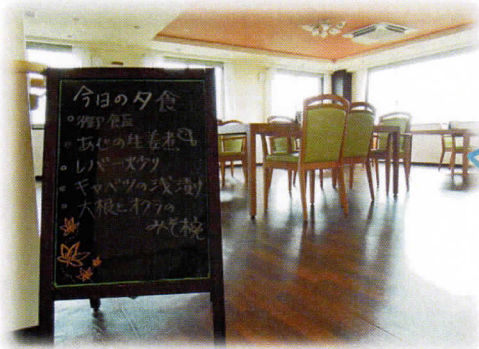 今日の夕食
・御飯
・あじの生姜煮
・レバー炒り
・キャベツの浅漬け
・大根とオクラの
みそ椀